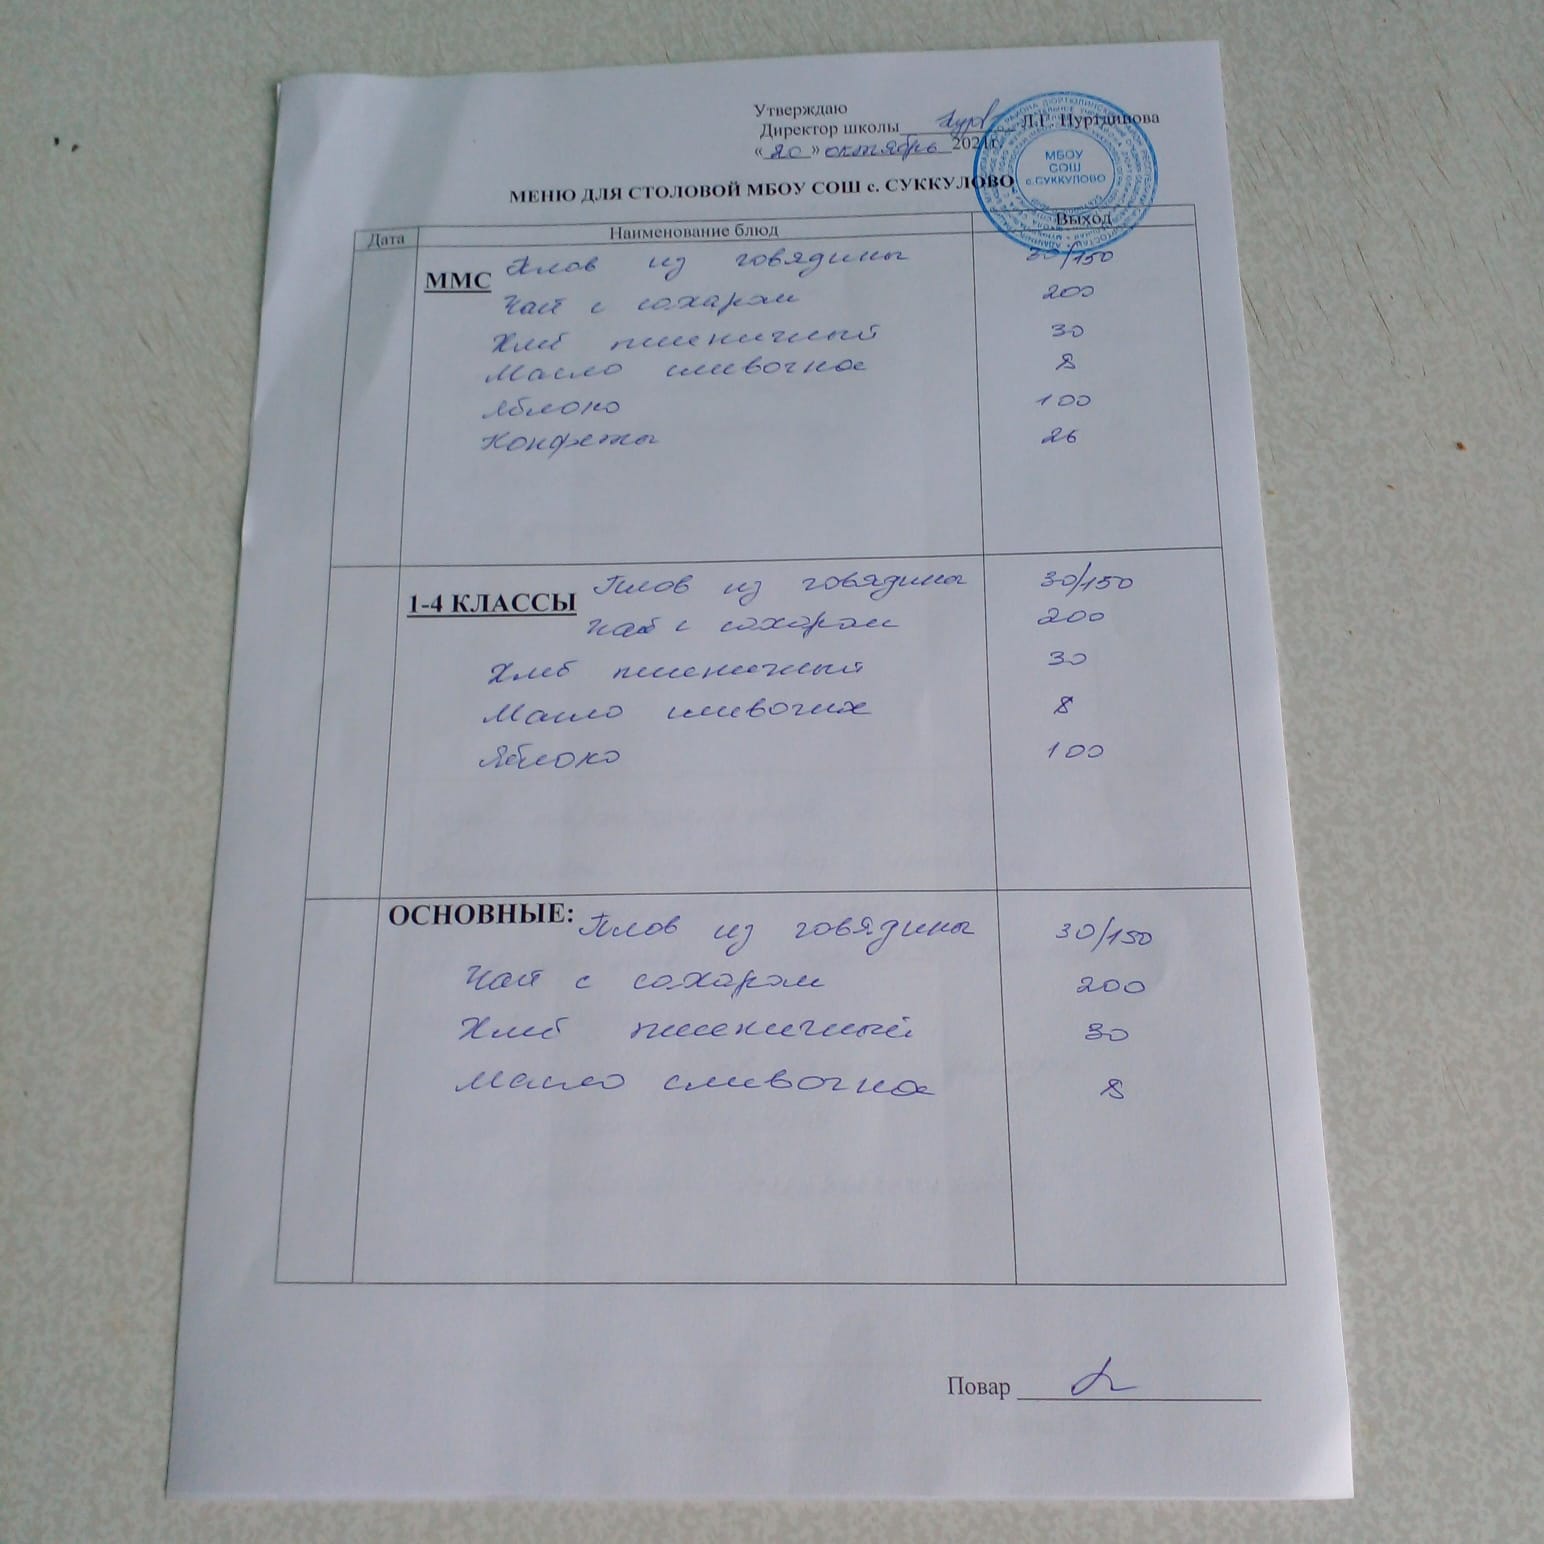 Утверждаю
Директор школы Л.Г. Нуртдинова
«20» октябрь 2021г.
МБОУ
СОШ
с.СУККУЛОВО
МЕНЮ ДЛЯ СТОЛОВОЙ МБОУ СОШ с. СУККУЛОВО
Дата Наименование блюд Выход
ММС Плов из говядины 30/150
Чай с сахаром 200
Хлеб пшеничный 30
Масло сливочное 8
Яблоко 100
Конфеты 26
1-4 КЛАССЫ Плов из говядины 30/150
Чай с сахаром 200
Хлеб пшеничный 30
Масло сливочное 8
Яблоко 100
ОСНОВНЫЕ: Плов из говядины 30/150
Чай с сахаром 200
Хлеб пшеничный 30
Масло сливочное 8
Повар